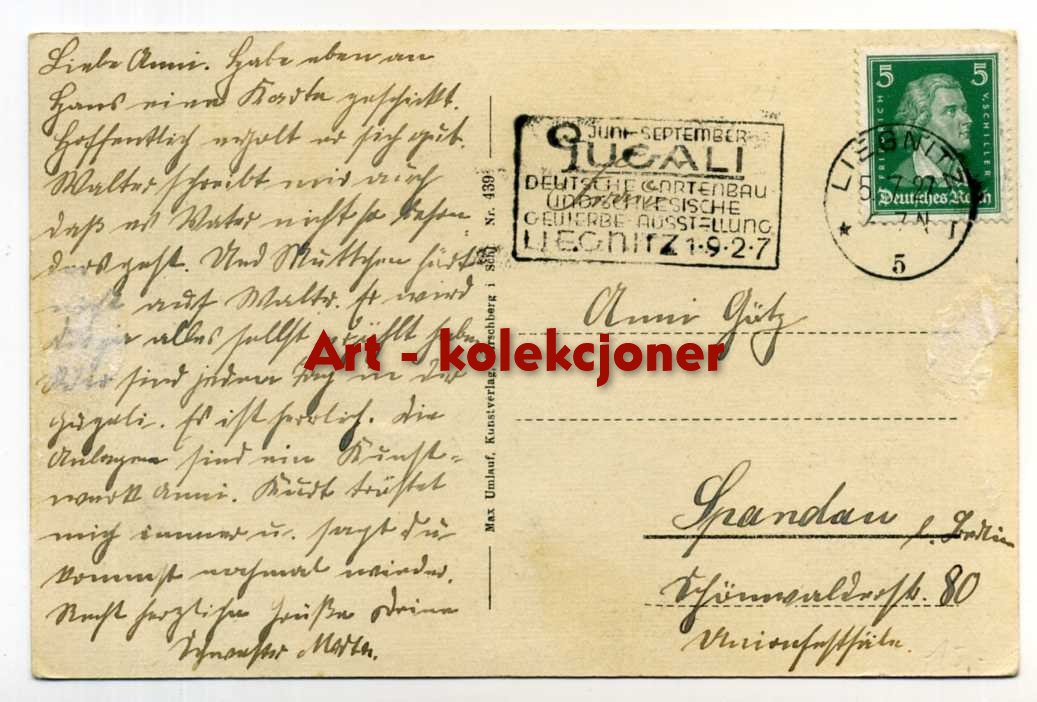 Liebe Anni. Habe eben an
Hans eine Karte geschickt.
Hoffentlich erholt er sich gut.
Walter schreibt mir auch
daß es Vater nicht so beson
ders geht. Und Muttchen
auf Walter. Er wird
alles selbst erzählt haben
Wir sind jeden Tag in der
Gugali. Es ist herrlich. Die
Anlagen sind ein Kunst-
werk Anni. Kurt tröstet
mich immer u. sagt Du
kommst nochmal wieder.
Recht herzliche Grüße Deine
Schwester Marta.
Max Umlauf, Kunstverlag, Hirschberg i Schl. Nr. 4398
JUNI-SEPTEMBER
GUGALI
DEUTSCHE GARTENBAU
UND SCHLESISCHE
GEWERBE-AUSSTELLUNG
LIEGNITZ 1·9·2·7
5 5
FRIEDRICH V. SCHILLER
Deutsches Reich
LIEGNITZ
7.27
7N
* 1
5
Anni Götz
Art - kolekcjoner
Spandau b. Berlin
Schönwalderstr. 80
Unionfestsäle.